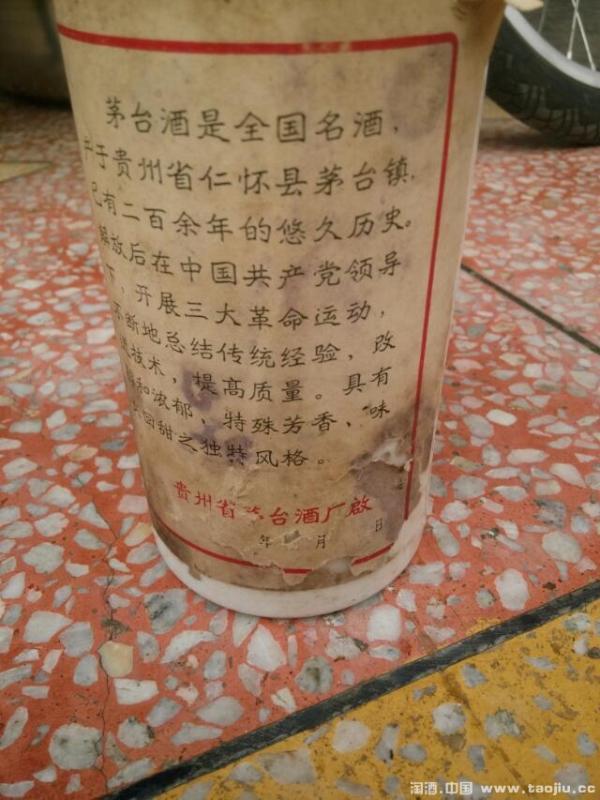 茅台酒是全国名酒，
产于贵州省仁怀县茅台镇，
已有二百余年的悠久历史。
解放后在中国共产党领导
下，开展三大革命运动，
不断地总结传统经验，改
进技术，提高质量。具有
和浓郁，特殊芳香，味
回甜之独特风格。
贵州省茅台酒厂啟
年 月 日
淘酒.中国 www.taojiu.cc